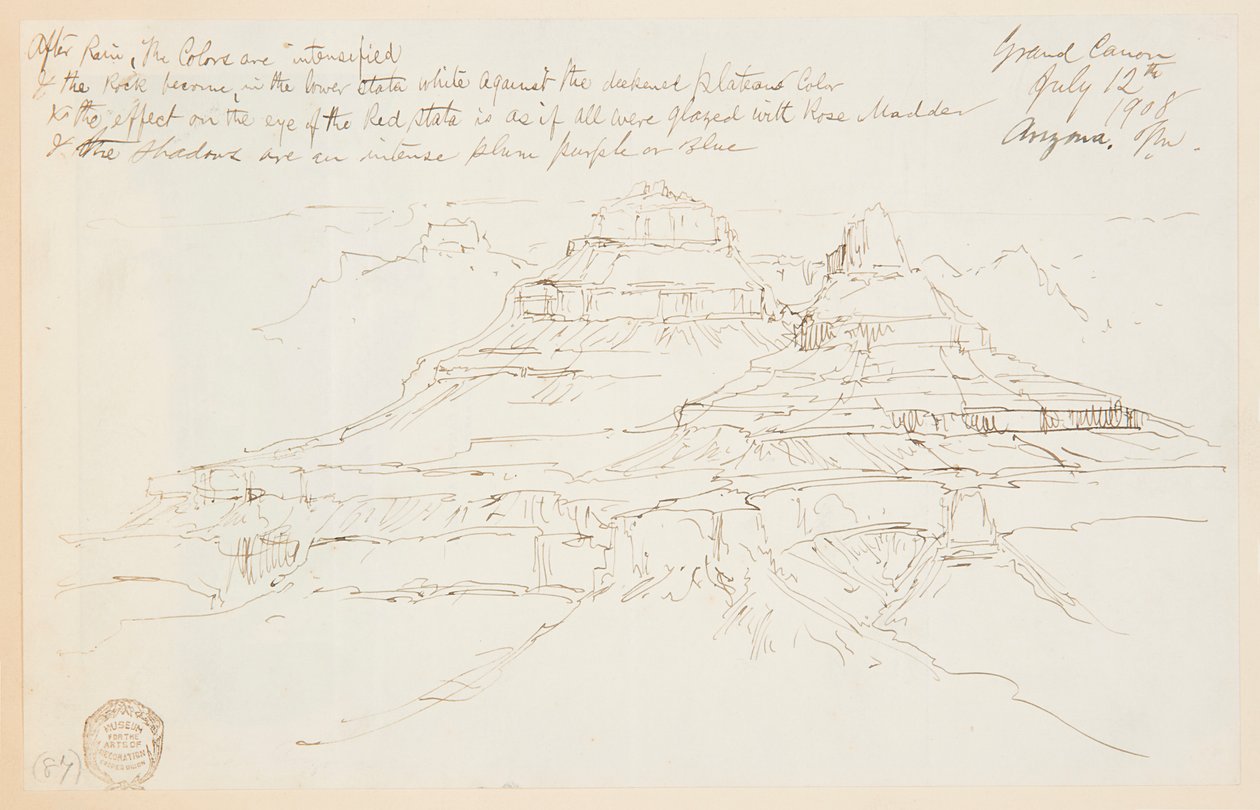 After Rain, the Colors are intensified
& the Rock become, in the lower stata white against the deekened plateaus Color
the effect on the eye of the Red stata is as if all were glazed with Rose Madder
& the shadows are an intense plum purple or Blue
Grand Canon
July 12th
1908
Arizona.
MUSEUM
FOR THE
ARTS OF
DECORATION
COOPER UNION
(87)